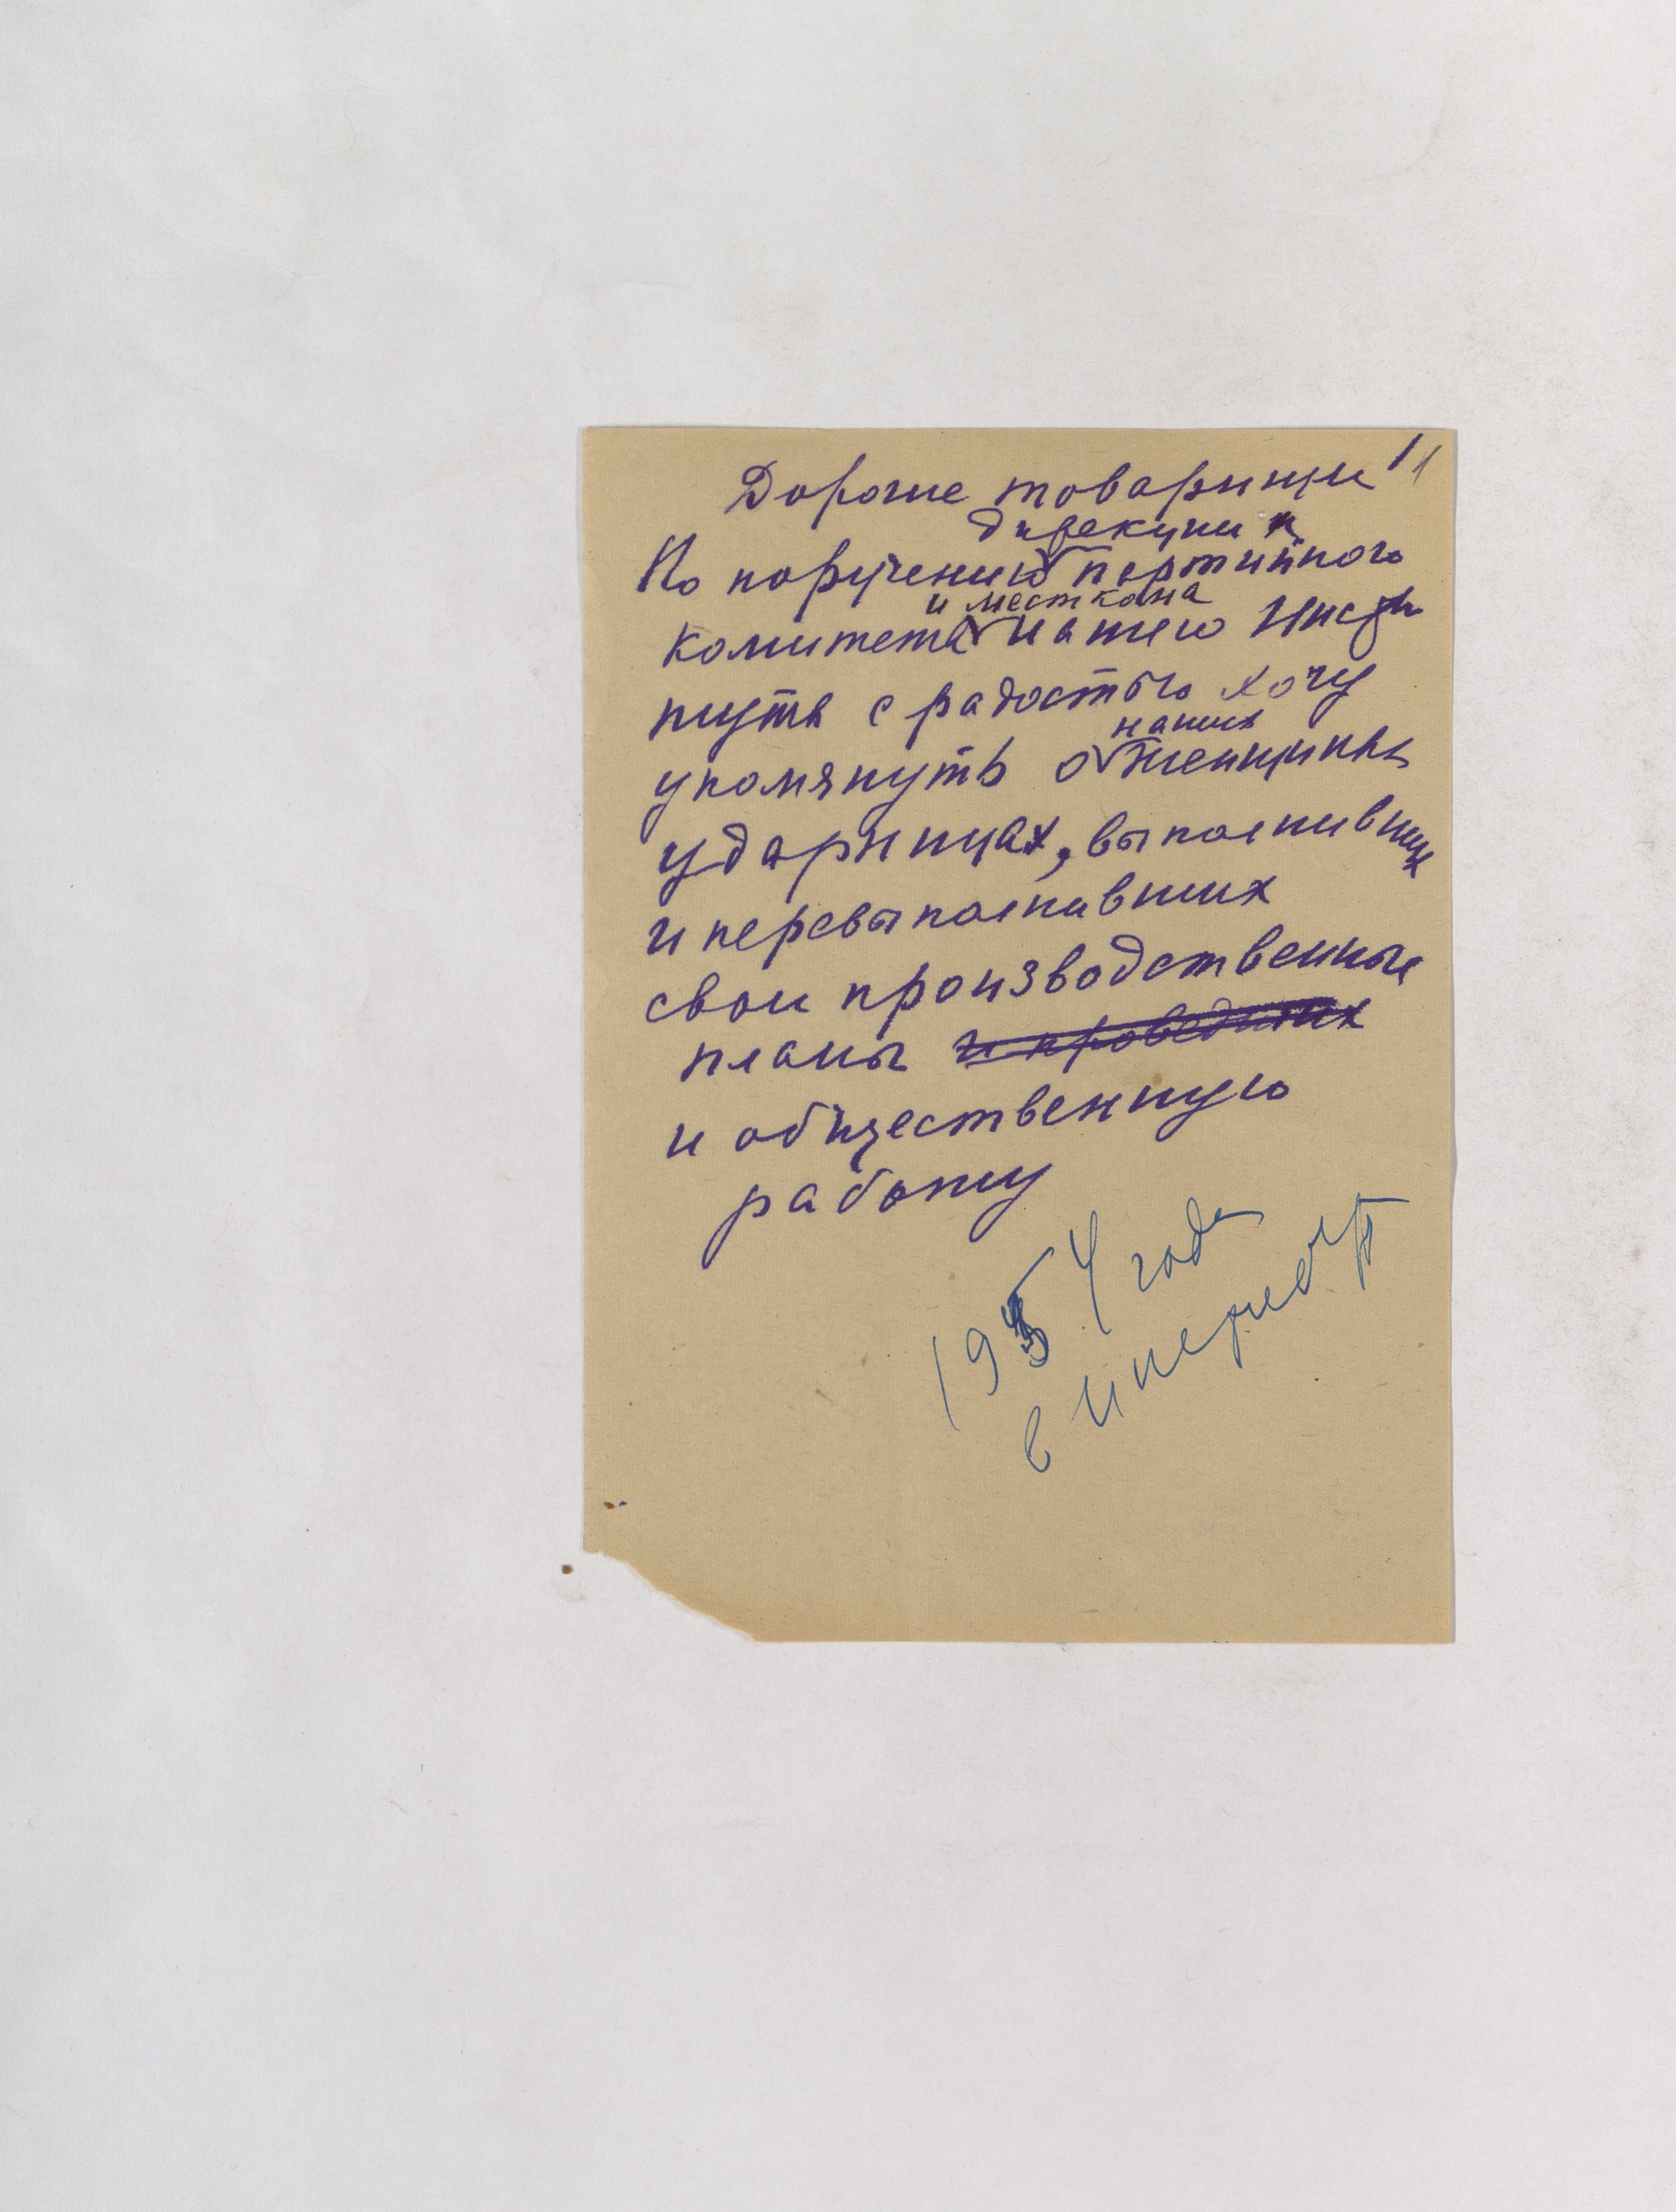 Дорогие товарищи! 1
дирекции и
По поручению партийного
и месткома
комитета нашего Инсти
тута с радостью хочу
наших
упомянуть о женщинах
ударницах, выполнивших
и перевыполнивших
свои производственные
планы и проведших
и общественную
работу
1954 года
в